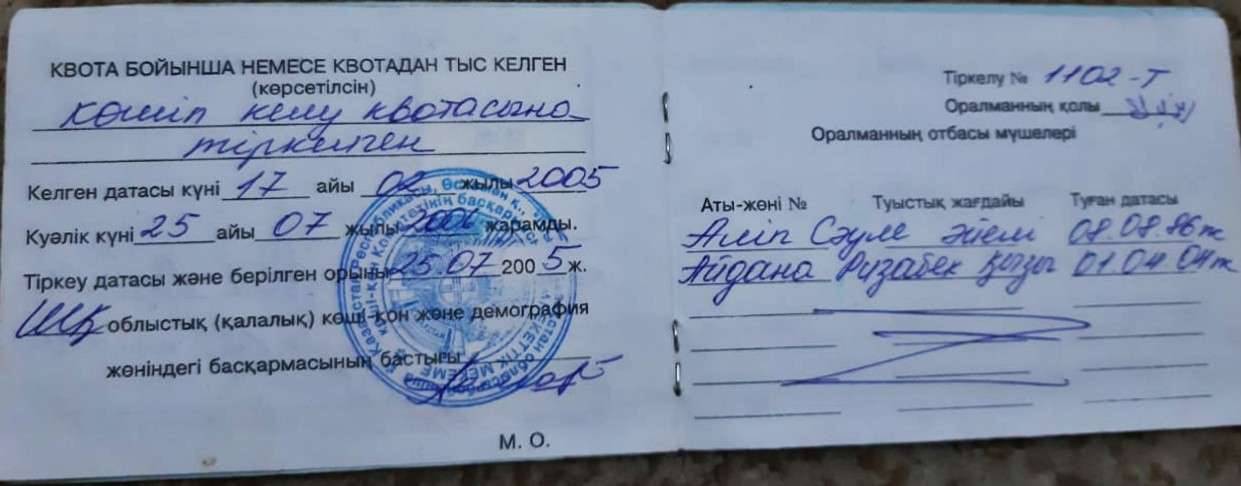 КВОТА БОЙЫНША НЕМЕСЕ КВОТАДАН ТЫС КЕЛГЕН
(көрсетілсін)
көшіп келу квотасына
тіркелген
Келген датасы күні 17 айы 02 жылы 2005
Куәлік күні 25 айы 07 жылы 2006 жарамды.
Тіркеу датасы және берілген орыны 25.07 2005 ж.
ШҚ облыстық (қалалық) көші-қон және демография
жөніндегі басқармасының бастығы
М. О.
Тіркелу № 1102-Т
Оралманның қолы
Оралманның отбасы мүшелері
Аты-жөні № Туыстық жағдайы Туған датасы
Аліп Сәуле әйелі 08.08.86ж
Айдана Ризабек қызы 01.04.04ж